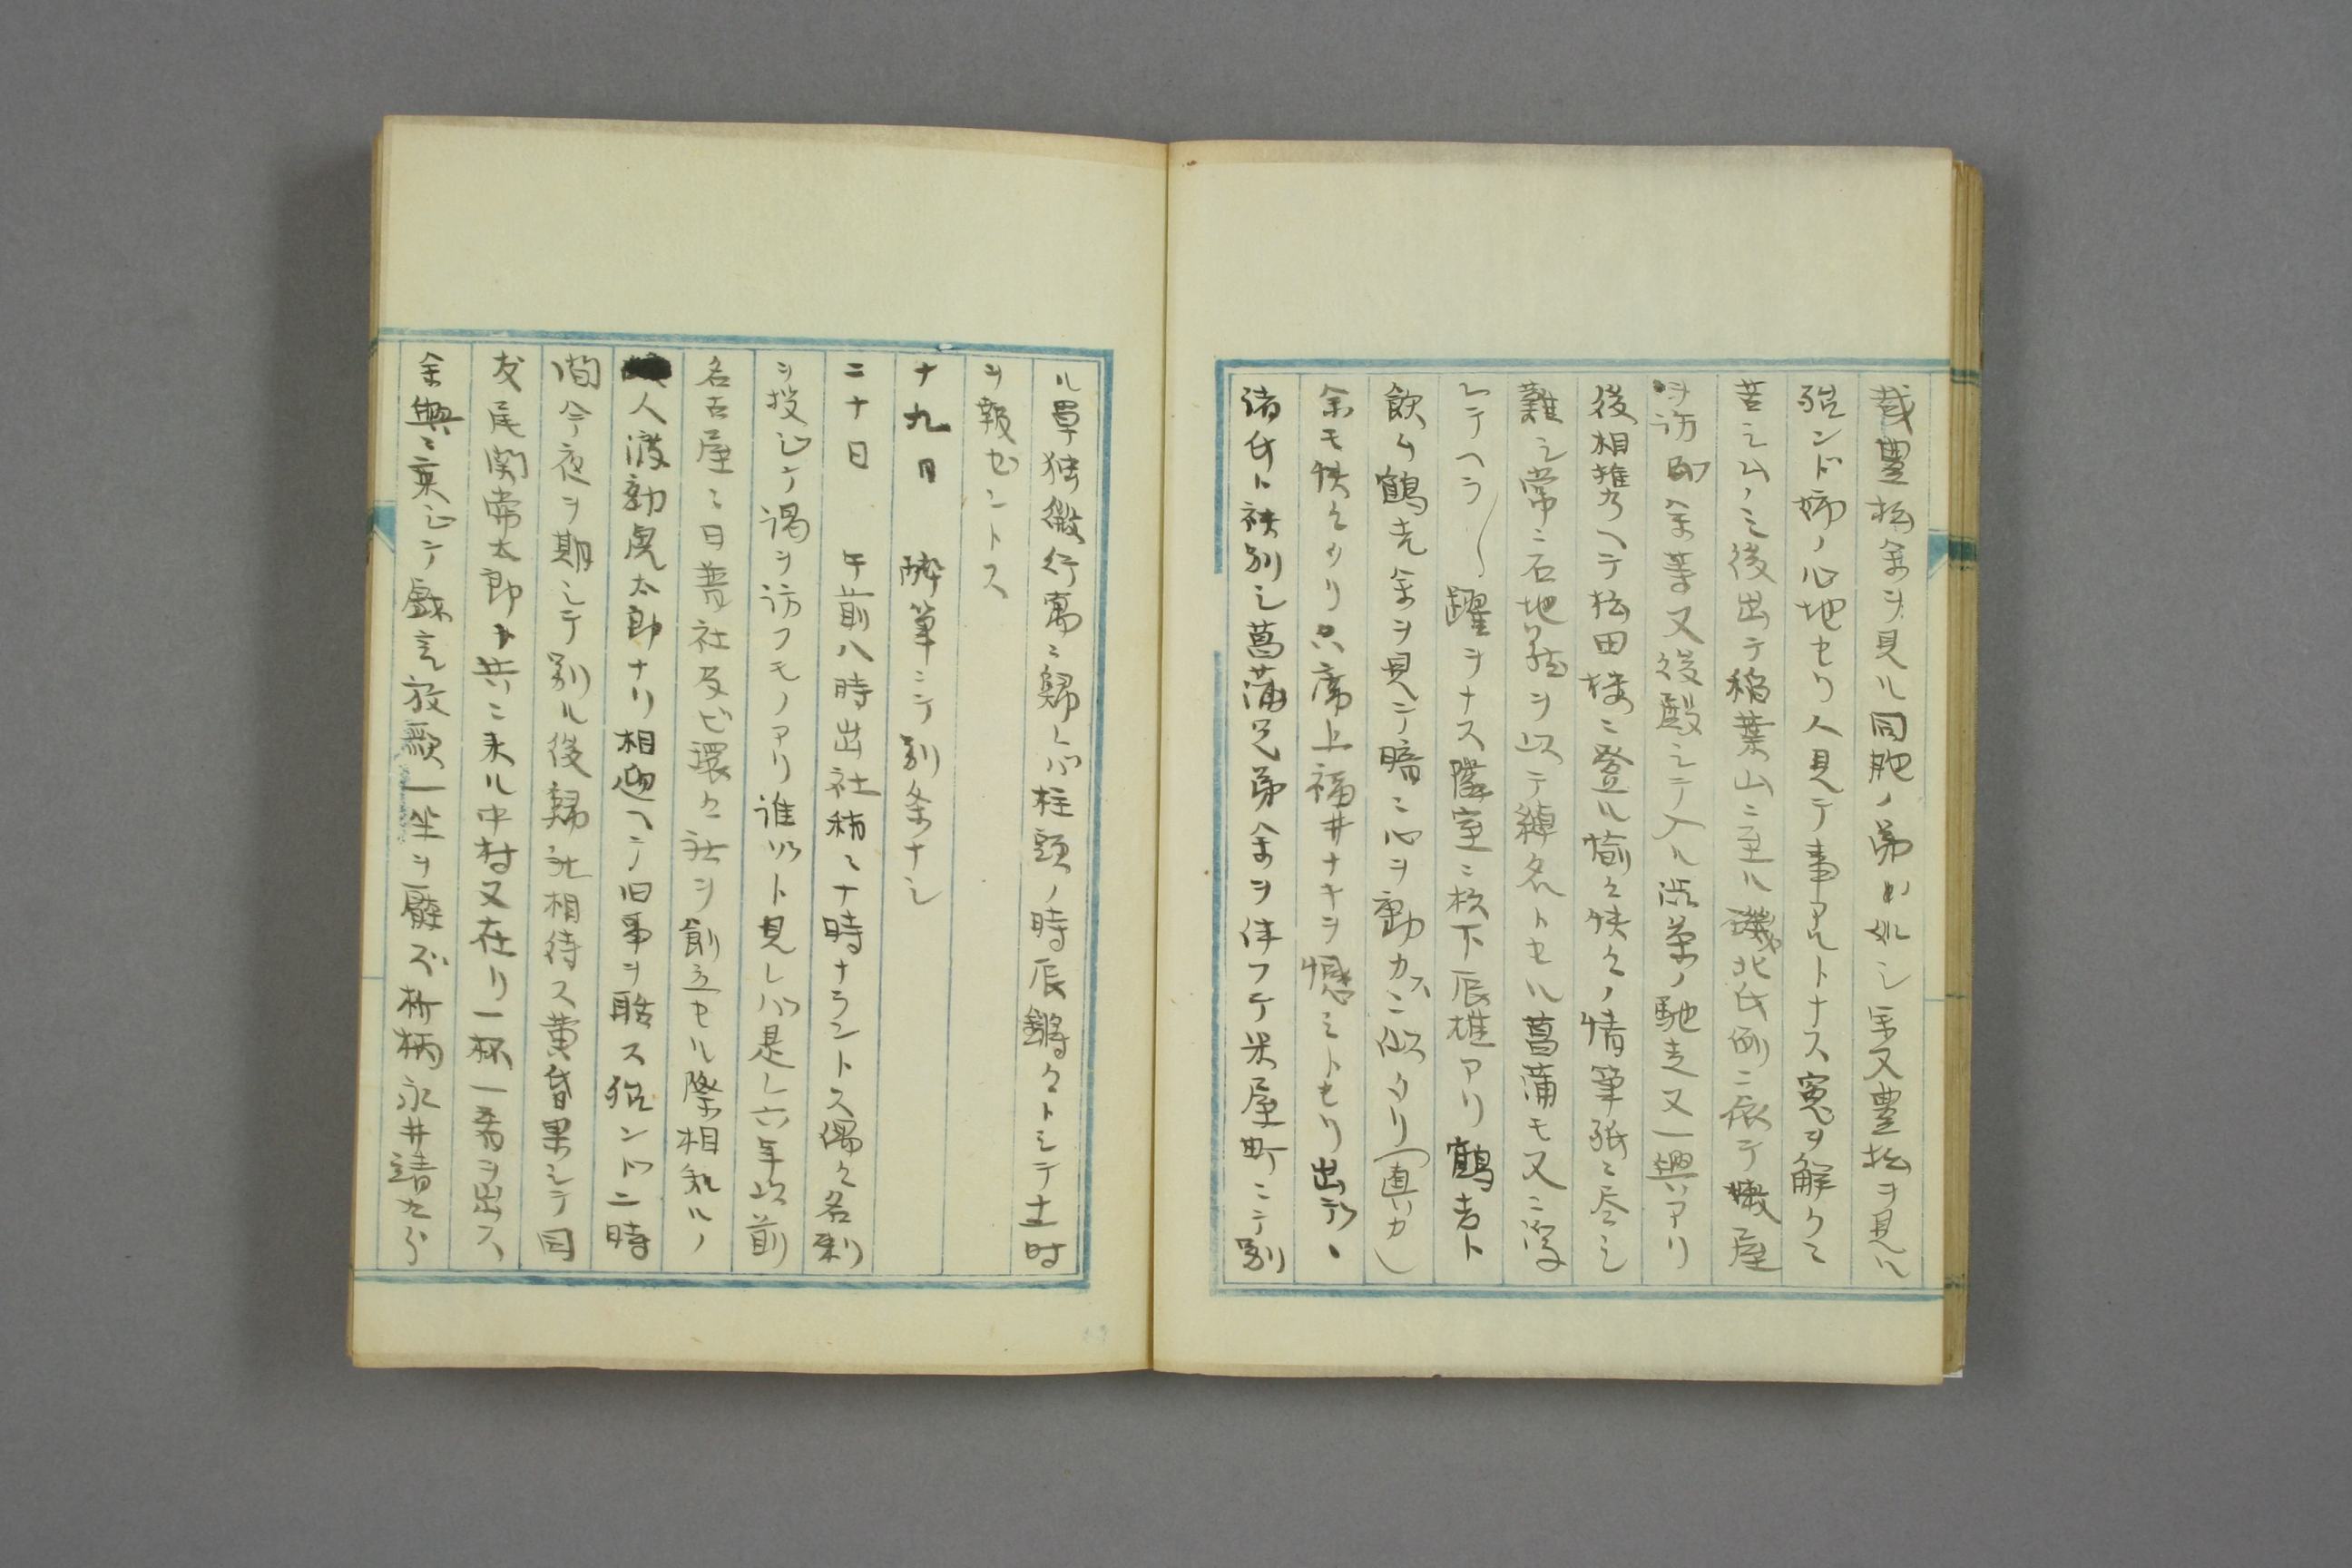 哉豊松余ヲ見ル同胞ノ弟ノ如シ余又豊松ヲ見ル
殆ンド姉ノ心地セリ人見テ事アリトナス寃ヲ解クニ
苦シムノミ後出テ稲葉山ニ至ル磯北氏例ニ依テ
ヲ訪 余等又後殿シテ入ル ノ馳走又一興アリ
後相携ヘテ松田楼ニ登ル愉々快々ノ情筆紙ニ尽シ
難シ常ニ石地蔵ヲ以テ綽名トセル菖蒲モ又
シテヘラ〳〵躍ヲナス隣室ニ松下辰雄アリ鶴吉ト
飲ム鶴吉余ヲ見テ暗ニ心ヲ動カスニ似タリ(真カ)
余モ快々タリ只席上福井ナキヲ憾ミトセリ出テ、
諸氏ト袂別シ菖蒲兄弟余ヲ伴フテ米屋町ニテ別
ル単独微行寓ニ歸レバ柱頭ノ時辰鏘々トシテ十二時
ヲ報ゼントス
十九日 酔筆ニテ別条ナシ
二十日 午前八時出社稍ニ十時ナラントス偶々名刺
ヲ投ジテ謁ヲ訪フモノアリ誰ゾト見レバ是レ六年以前
名古屋ニ日普社及ビ環々社ヲ創立セル際相知ルノ
人渡勘虎太郎ナリ相迎ヘテ旧事ヲ話ス殆ンド二時
間今夜ヲ期シテ別ル後歸宅相待ス黄昏果シテ同
友尾関常太郎ト共ニ来ル中村又在リ一杯一肴ヲ出ス
余興ニ乗ジテ戯言放歌一坐ヲ壓ス折柄永井靖九郎